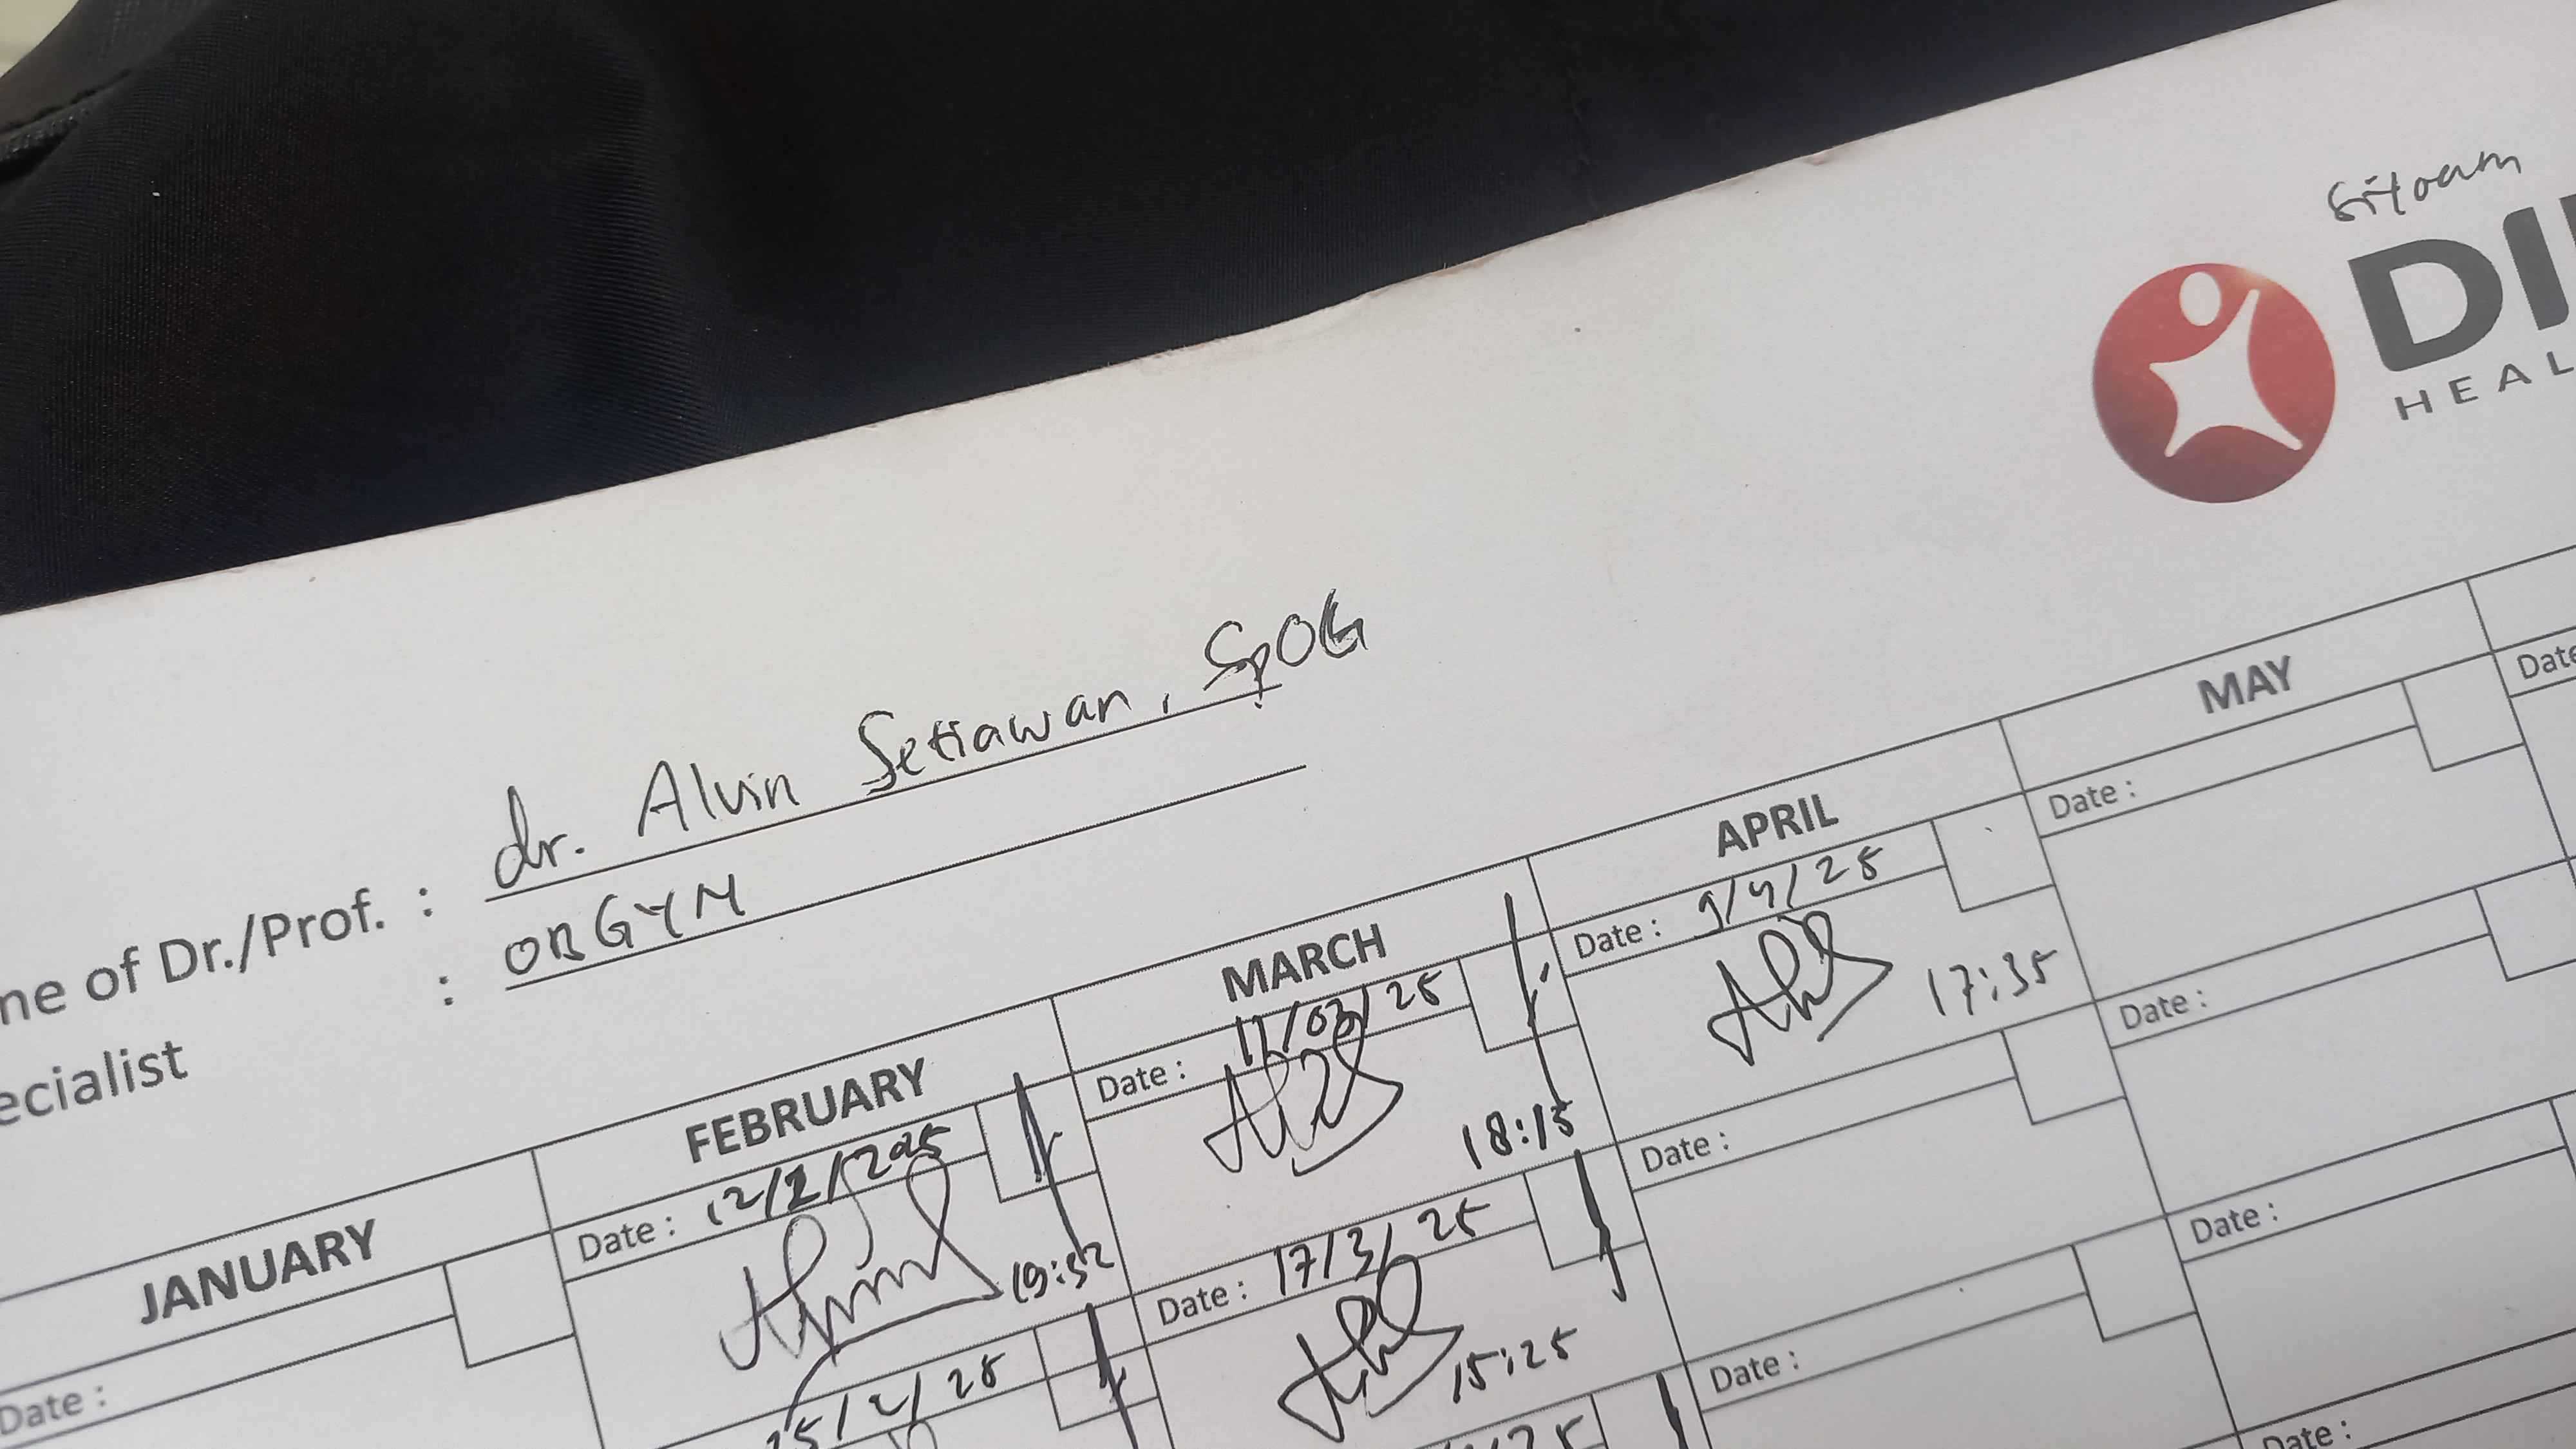 Siloam
DI
HEAL
ne of Dr./Prof. : dr. Alvin Setiawan, SpOG
ecialist : OBGYN
JANUARY FEBRUARY MARCH APRIL MAY
Date : Date : 12/2/2025 Date : 11/03/25 Date : 9/4/25 Date : Date
19:32 18:15 17:35
25/2/25 Date : 17/3/25 Date : Date :
15:25
Date : Date :
Date :